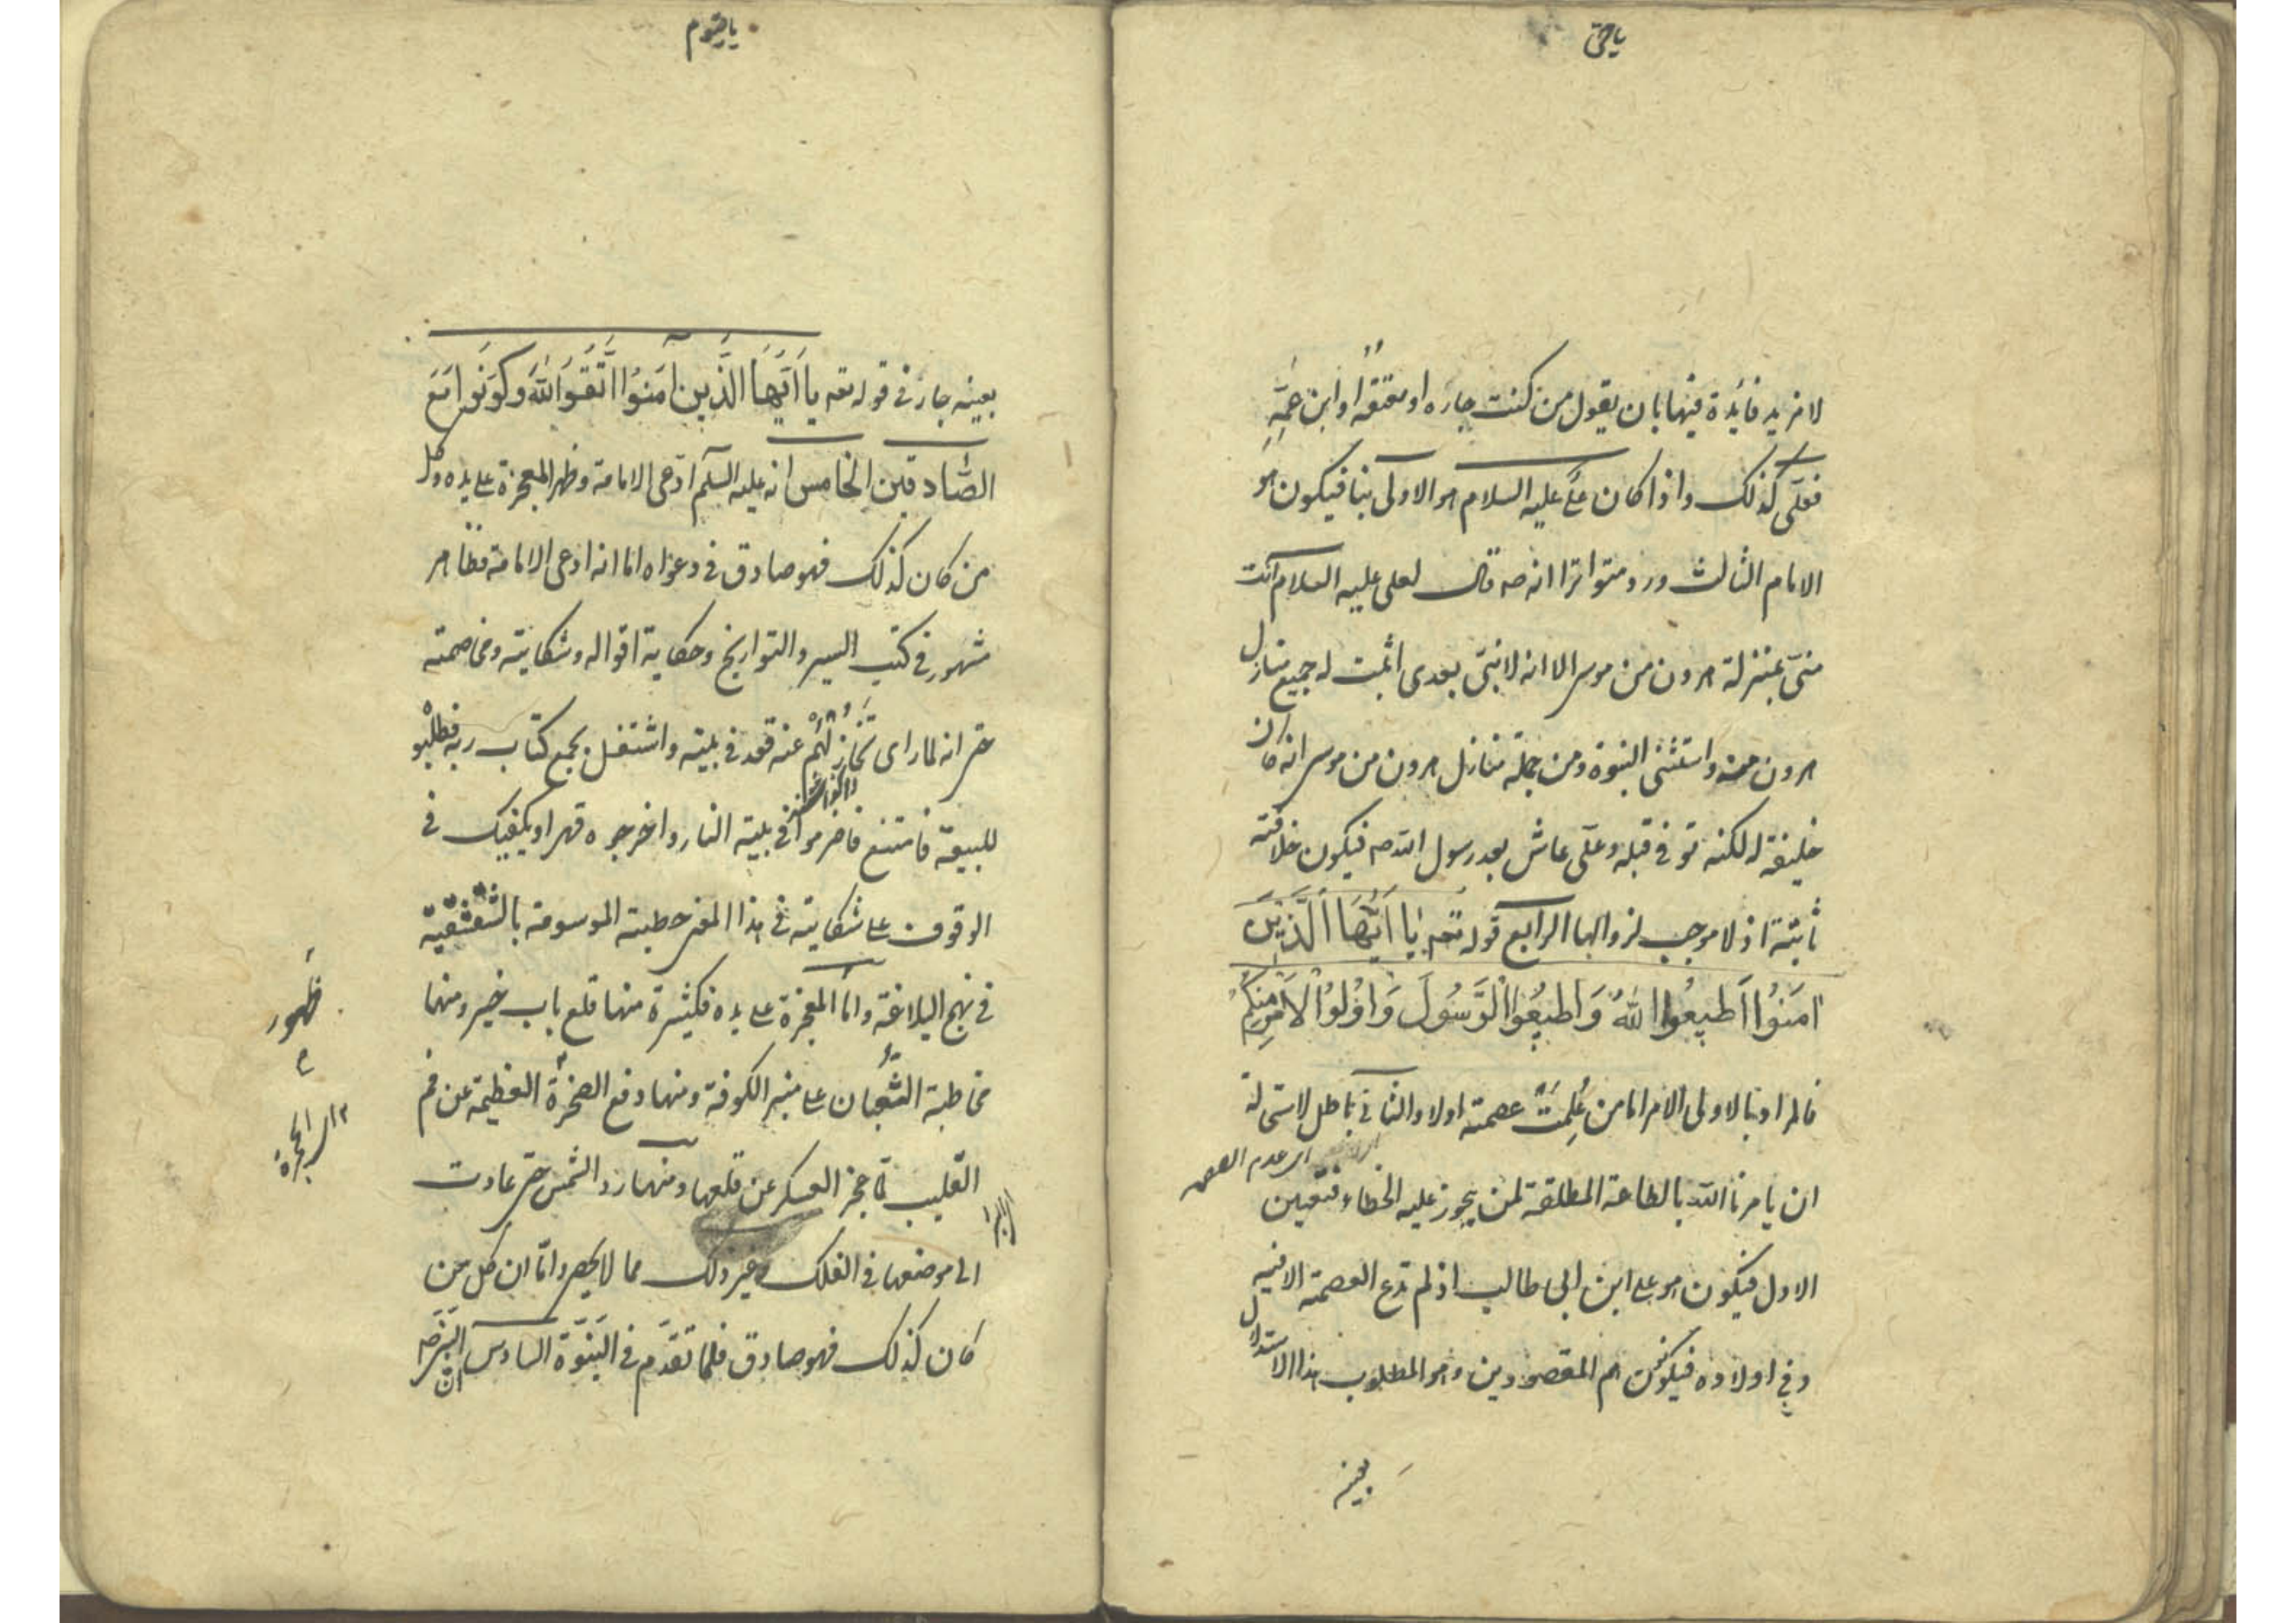 ياحى
لا مزيد فايدة فيها بان يقول من كنت جاره او معتقه او ابن عمه
فعلى كذلك واذا كان على عليه السلام هو الاولى بنا فيكون هو
الامام الثالث ورد متواترا انه صه قال لعلى عليه السلام انت
منى بمنزلة هرون من موسى الا انه لا نبى بعدى اثبت له جميع منازل
هرون منه واستثنى النبوة ومن جملة منازل هرون من موسى انه كان
خليفة له لكنه توفى قبله وعلى عاش بعد رسول الله صه فيكون خلافته
ثابتة اذ لا موجب لزوالها الرابع قوله تعه يَا اَيُّهَا الَّذِينَ
امَنُوا اَطِيعُوا اللهَ وَاَطِيعُوا الرَّسُولَ وَاُوْلُوا الْاَمْرِ مِنْكُمْ
فالمراد بالاولى الامر اما من عُلِمَتْ عصمته اولا والثانى باطل لاستحالة
اى عدم العصمـ
ان يامرنا الله بالطاعة المطلقة لمن يجوز عليه الخطاء فتعين
الاول فيكون هو على ابن ابى طالب اذ لم تدع العصمة الا فيه
وفي اولاده فيكونون هم المقصودين وهو المطلوب هذا الاستدلال
بعينه
ياقيوم
بعينه جار فى قوله تعه يا اَيّهَا الَّذين امَنوا اتّقوا اللهَ وَكُونُوا مَعَ
الصَّادقين الخامس انه عليه السلم ادّعى الامامة وظهر المعجزة على يده وكل
من كان كذلك فهو صادق فى دعواه اما انه ادعى الامامة فظاهر
مشهور فى كتب السير والتواريخ وحكاية اقواله وشكايته ومخاصمته
حتى انه لما راى تخاذلهم عنه قعد فى بيته واشتغل بجمع كتاب ربه فطلبوه
للبيعة فامتنع فاضرموا فى بيته النار واخرجوه قهرا ويكفيك فى
الوقوف على شكايته فى هذا المعنى خطبته الموسومة بالشقشقية
فى نهج البلاغة واما المعجزة على يده فكثيرة منها قلع باب خيبر ومنها
مخاطبة الثعبان على منبر الكوفة ومنها رفع الصخرة العظيمة عن فم
القليب لما عجز العسكر عن قلعها ومنها رد الشمس حتى عادت
الى موضعها فى الفلك وغير ذلك مما لا يحصى واما ان كل من
كان كذلك فهو صادق فلما تقدّم فى النبوّة السادس ان النبى صه
ظهور